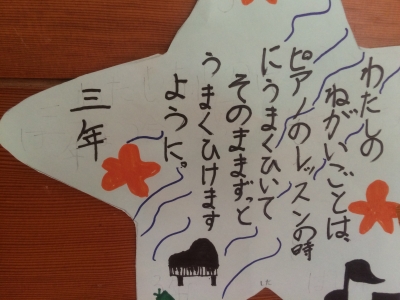 わたしの
ねがいごとは、
ピアノのレッスンの時
にうまくひいて
そのままずっと
うまくひけます
ように。
三年